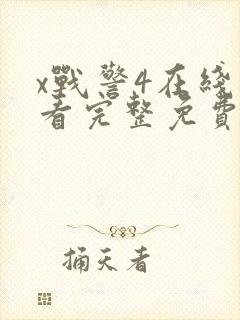 x戰警4在綫
看完整免費
捅天者